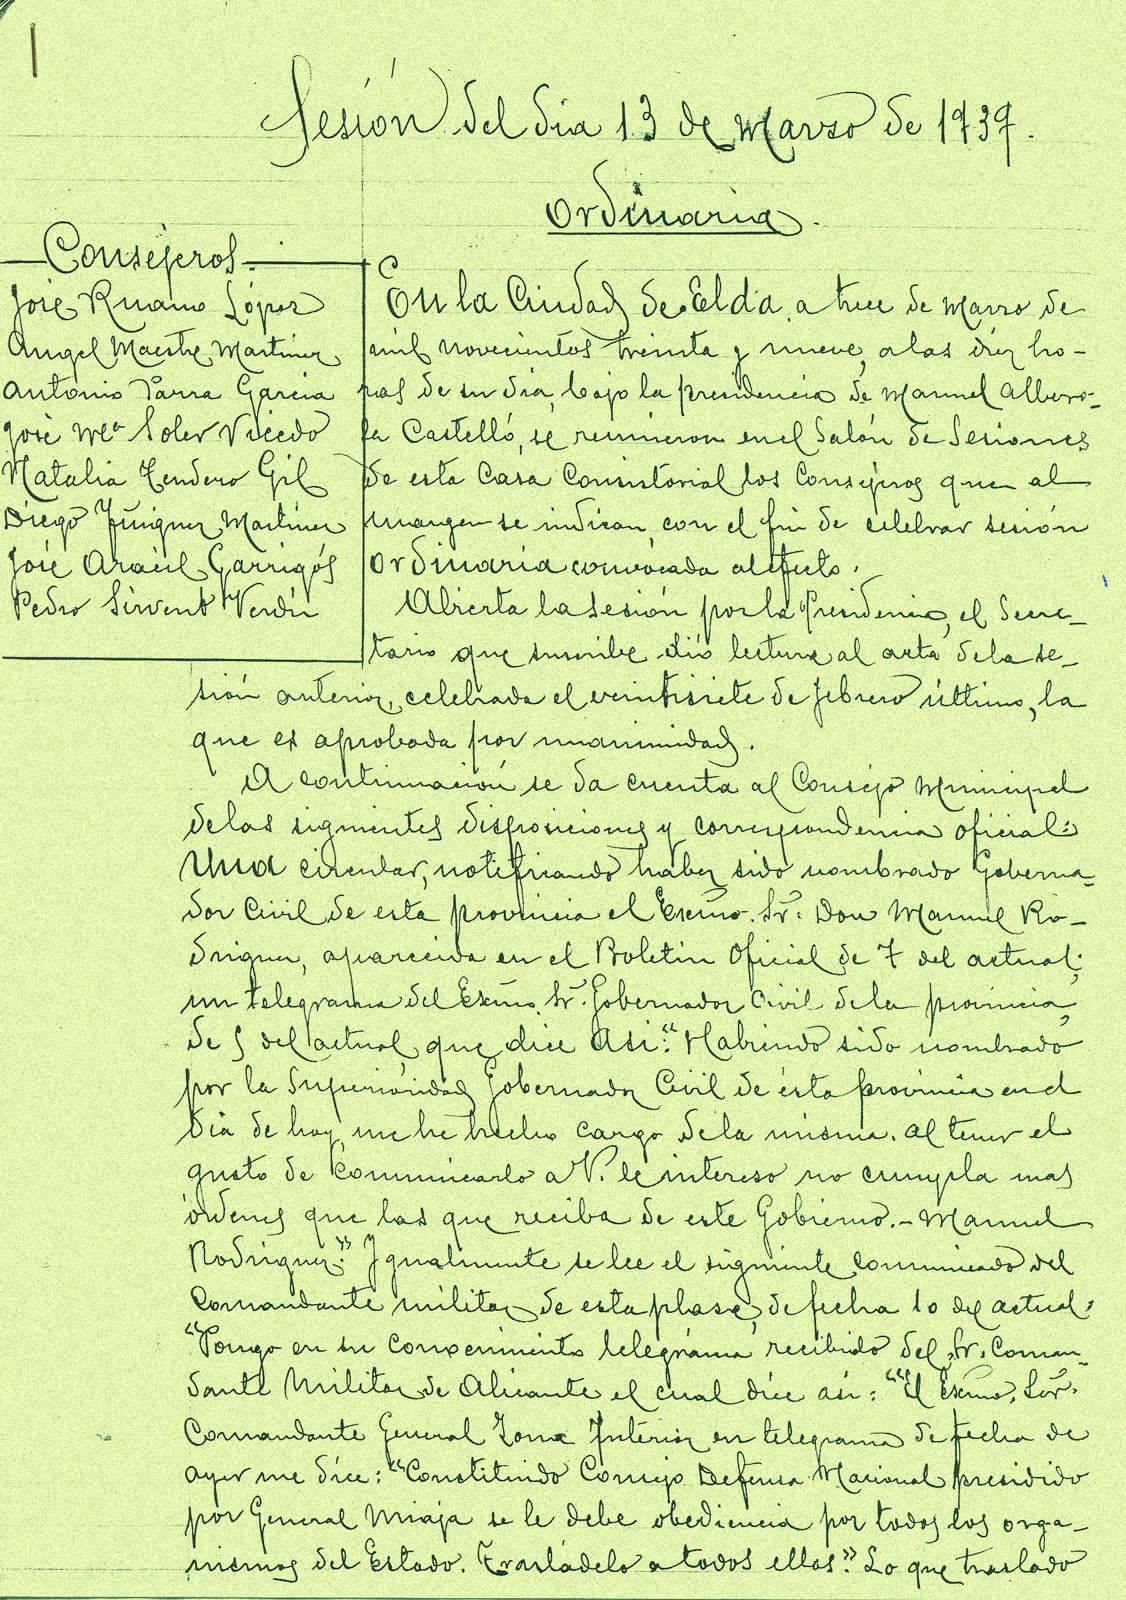 Sesión del día 13 de Marzo de 1939.
Ordinaria.
Consejeros.
José Ruano López
Angel Maestre Martinez
Antonio Parra Garcia
José Mª Soler Vicedo
Natalia Tendero Gil
Diego Iñiguez Martinez
José Aracil Garrigós
Pedro Sirvent Verdú
En la Ciudad de Elda, a trece de Marzo de
mil novecientos treinta y nueve, a las diez ho-
ras de su día, bajo la presidencia de Manuel Albero-
la Castelló, se reunieron en el Salón de Sesiones
de esta Casa Consistorial los Consejeros que al
margen se indican, con el fin de celebrar sesión
ordinaria convocada al efecto.
Abierta la sesión por la Presidencia, el Secre-
tario que suscribe dió lectura al acta de la se-
sión anterior, celebrada el veintisiete de febrero último, la
que es aprobada por unanimidad.
A continuación se da cuenta al Consejo Municipal
de las siguientes disposiciones y correspondencia oficial:
Una circular, notificando haber sido nombrado Goberna-
dor Civil de esta provincia el Excmo. Sr. Don Manuel Ro-
driguez, aparecida en el Boletin Oficial de 7 del actual;
un telegrama del Excmo. Sr. Gobernador Civil de la provincia,
de 5 del actual, que dice asi: "Habiendo sido nombrado
por la Superióridad Gobernador Civil de ésta provincia en el
dia de hoy, me he hecho cargo de la misma. Al tener el
gusto de comunicarlo a V. le intereso no cumpla mas
órdenes que las que reciba de este Gobierno.- Manuel
Rodriguez." Igualmente se lee el siguiente comunicado del
Comandante militar de esta plaza, de fecha 10 del actual:
"Pongo en su conocimiento telegrama recibido del Sr. Coman-
dante Militar de Alicante el cual dice asi: ""El Excmo. Sor.
Comandante General Zona Interior en telegrama de fecha de
ayer me dice: "Constituido Consejo Defensa Nacional presidido
por General Miaja se le debe obediencia por todos los orga-
nismos del Estado. Trasládelo a todos ellos." Lo que traslado